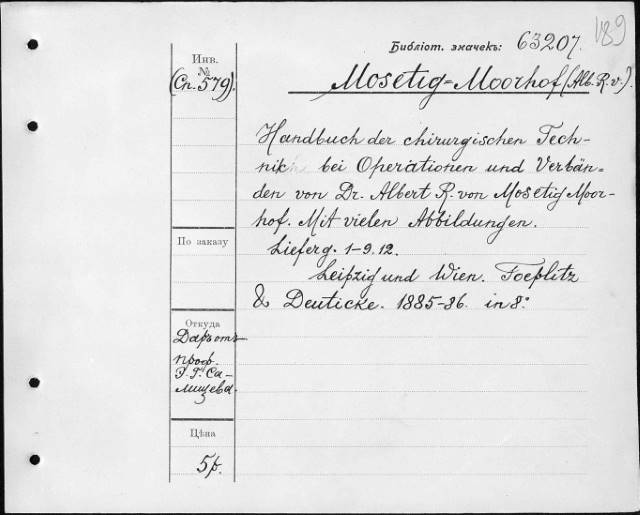 189
Библіот. значекъ: 63207.
Инв.
№
(Сп. 579).
Mosetig-Moorhof (Alb. R. v.).
Handbuch der chirurgischen Tech-
nik bei Operationen und Verbän-
den von Dr. Albert R. von Mosetig Moor-
hof. Mit vielen Abbildungen.
Lieferg. 1-9. 12.
Leipzig und Wien. Toeplitz
& Deuticke. 1885-86. in 8°.
По заказу
Откуда
Даръ отъ
проф.
Э. Г. Са-
лищева.
Цѣна
5 р.